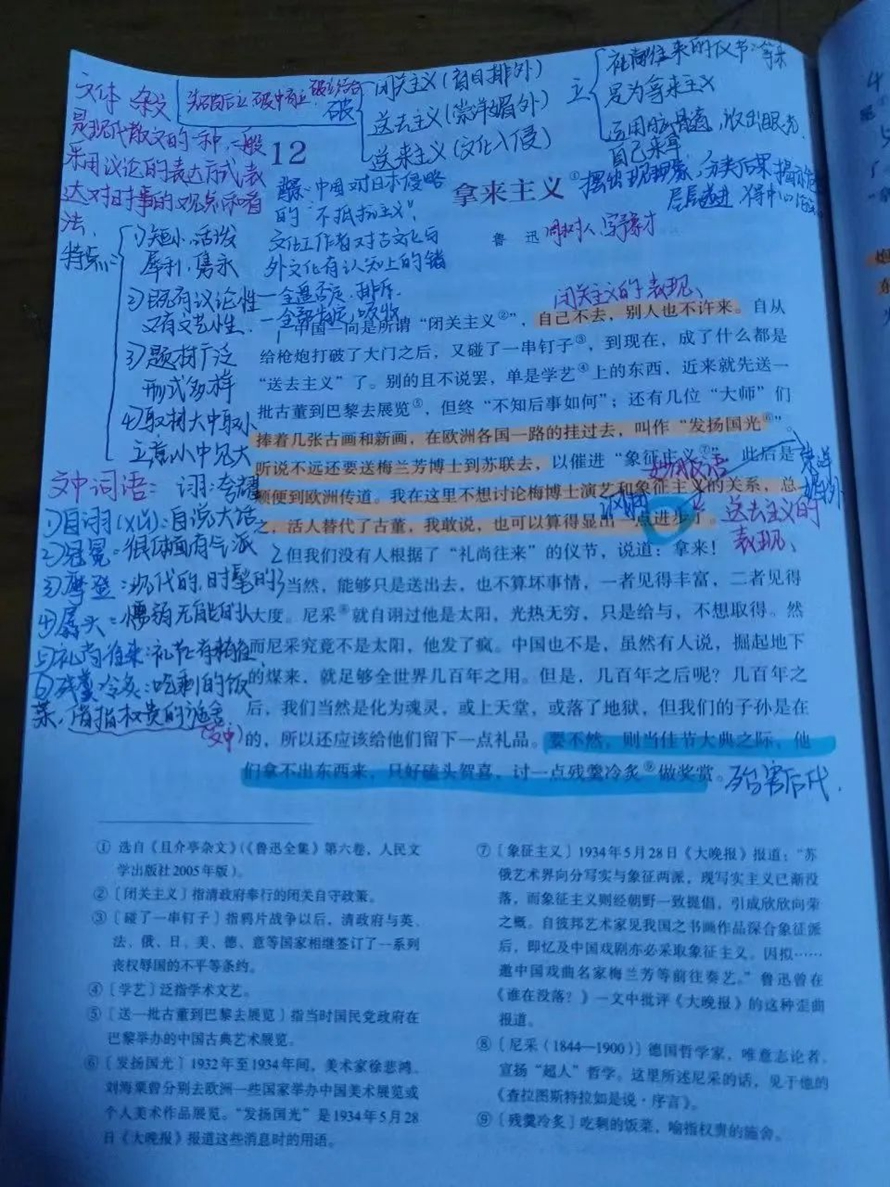 文体 杂文
是现代散文的一种,一般
采用议论的表达方式表
达对时事的观点和看
法。
特点:
1)短小、活泼
犀利、隽永
2)既有议论性
又有文艺性
3)题材广泛
形式多样
4)取材大中取小
立意小中见大
先破后立 破中有立
破
闭关主义(盲目排外)
送去主义(崇洋媚外)
送来主义(文化入侵)
立
礼尚往来的仪节:拿来
是为拿来主义
运用脑髓,放出眼光,
自己来拿
12
背景:中国对日本侵略
的“不抵抗主义”,
文化工作者对古文化与
外文化有认知上的错
一全盘否定、排斥
一全部肯定、吸收
拿来主义①
鲁 迅
闭关主义的表现、
中国一向是所谓“闭关主义②”,自己不去,别人也不许来。自从
给枪炮打破了大门之后,又碰了一串钉子③,到现在,成了什么都是
“送去主义”了。别的且不说罢,单是学艺④上的东西,近来就先送一
批古董到巴黎去展览⑤,但终“不知后事如何”;还有几位“大师”们
捧着几张古画和新画,在欧洲各国一路的挂过去,叫作“发扬国光⑥”。
听说不远还要送梅兰芳博士到苏联去,以催进“象征主义⑦”,此后是
顺便到欧洲传道。我在这里不想讨论梅博士演艺和象征主义的关系,总
之,活人替代了古董,我敢说,也可以算得显出一点进步了。
讽刺
崇洋
媚外
送去主义的
表现、
但我们没有人根据了“礼尚往来”的仪节,说道:拿来!
当然,能够只是送出去,也不算坏事情,一者见得丰富,二者见得
大度。尼采⑧就自诩过他是太阳,光热无穷,只是给与,不想取得。然
而尼采究竟不是太阳,他发了疯。中国也不是,虽然有人说,掘起地下
的煤来,就足够全世界几百年之用。但是,几百年之后呢?几百年之
后,我们当然是化为魂灵,或上天堂,或落了地狱,但我们的子孙是在
的,所以还应该给他们留下一点礼品。要不然,则当佳节大典之际,他
们拿不出东西来,只好磕头贺喜,讨一点残羹冷炙⑨做奖赏。
害后代.
文中词语: 诩:夸耀
1)自诩(xǔ):自说大话
2)冠冕:很体面有气派
3)摩登:现代的,时髦的
4)孱头:懦弱无能的人
5)礼尚往来:礼节有来有往
6)残羹冷炙:吃剩的饭
菜,借指权贵的施舍
(文中)
① 选自《且介亭杂文》(《鲁迅全集》第六卷,人民文
学出版社2005年版)。
② 〔闭关主义〕指清政府奉行的闭关自守政策。
③ 〔碰了一串钉子〕指鸦片战争以后,清政府与英、
法、俄、日、美、德、意等国家相继签订了一系列
丧权辱国的不平等条约。
④ 〔学艺〕泛指学术文艺。
⑤ 〔送一批古董到巴黎去展览〕指当时国民党政府在
巴黎举办的中国古典艺术展览。
⑥ 〔发扬国光〕1932年至1934年间,美术家徐悲鸿、
刘海粟曾分别去欧洲一些国家举办中国美术展览或
个人美术作品展览。“发扬国光”是1934年5月28
日《大晚报》报道这些消息时的用语。
⑦ 〔象征主义〕1934年5月28日《大晚报》报道:“苏
俄艺术界向分写实与象征两派,现写实主义已渐没
落,而象征主义则经朝野一致提倡,引成欣欣向荣
之概。自彼邦艺术家见我国之书画作品深合象征派
后,即忆及中国戏剧亦必采取象征主义。因拟……
邀中国戏曲名家梅兰芳等前往奏艺。”鲁迅曾在
《谁在没落?》一文中批评《大晚报》的这种歪曲
报道。
⑧ 〔尼采(1844—1900)〕德国哲学家,唯意志论者,
宣扬“超人”哲学。这里所述尼采的话,见于他的
《查拉图斯特拉如是说·序言》。
⑨ 〔残羹冷炙〕吃剩的饭菜,喻指权贵的施舍。